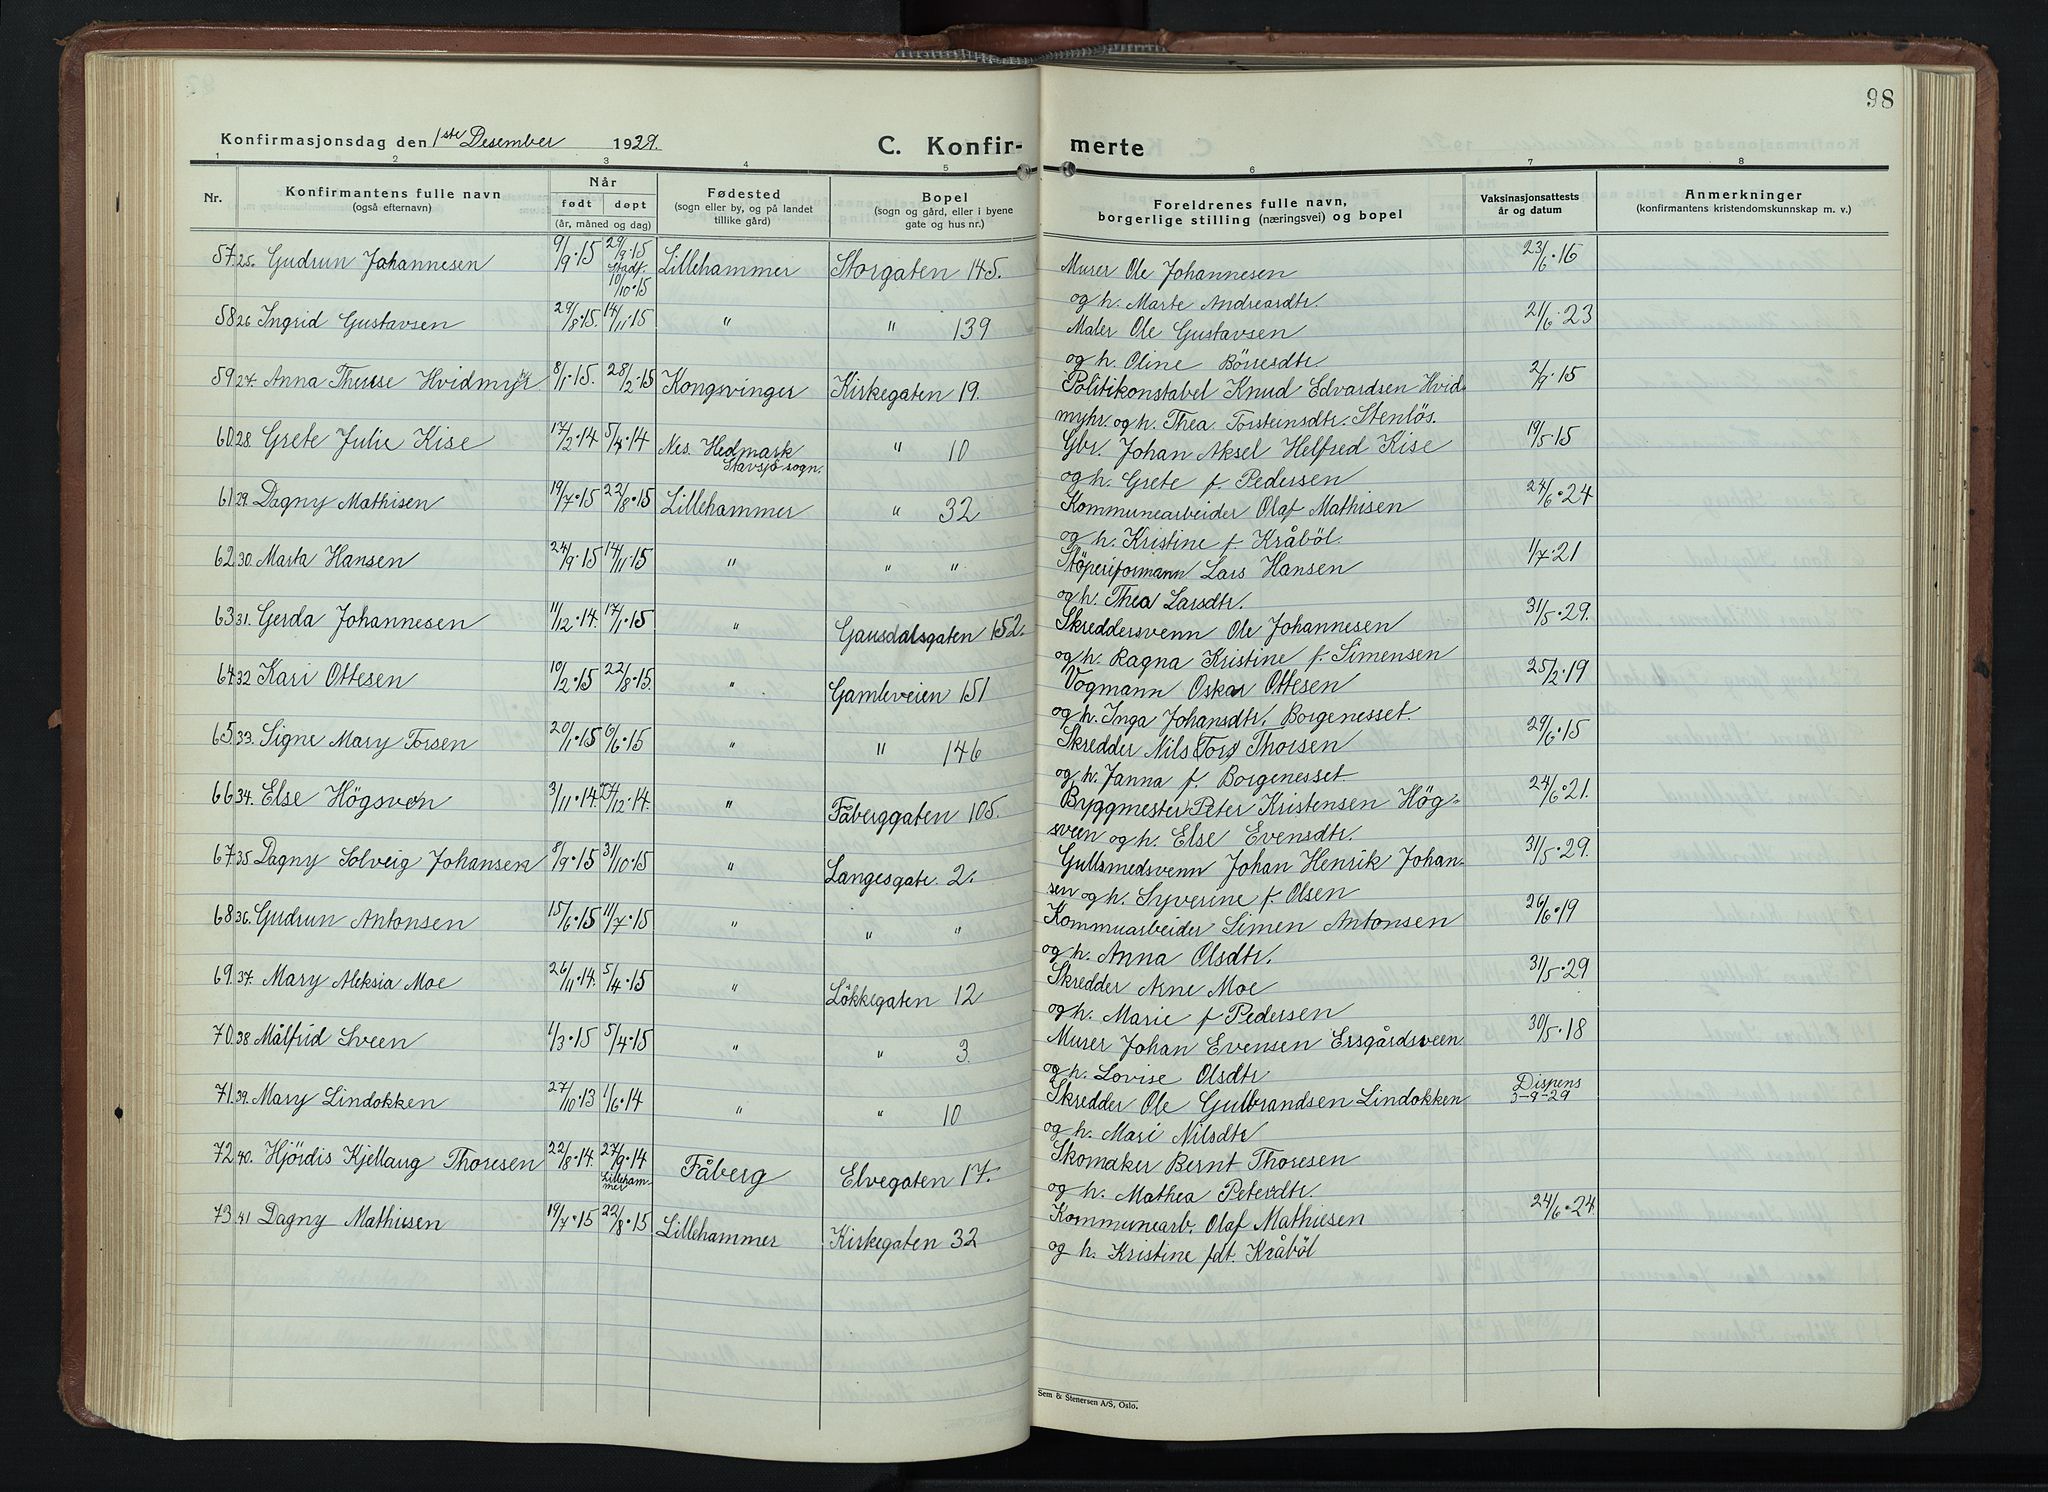 98
Konfirmasjonsdag den 1ste Desember 1929. C. Konfir- merte
1 2 3 4 5 6 7 8
Nr.
Konfirmantens fulle navn
(også efternavn)
Når
født døpt
(år, måned og dag)
Fødested
(sogn eller by, og på landet
tillike gård)
Bopel
(sogn og gård, eller i byene
gate og hus nr.)
Foreldrenes fulle navn,
borgerlige stilling (næringsvei) og bopel
Vaksinasjonsattests
år og datum
Anmerkninger
(konfirmantens kristendomskunnskap m. v.)
57 25. Gudrun Johannesen 9/9·15 29/9·15 Stadf. 10/10·15 Lillehammer Storgaten 145. Murer Ole Johannesen 23/6·16
og h. Marte Andreasdtr.
58 26 Ingrid Gustavsen 29/8·15. 14/11·15 " " 139 Maler Ole Gustavsen 21/6·23
og h. Oline Börresdtr.
59 27. Anna Therese Hvidmyr 8/1·15. 28/2·15 Kongsvinger Kirkegaten 19. Politikonstabel Knud Edvardsen Hvid- 2/9·15
myhr. og h. Thea Torsteinsdtr. Stenlös.
60 28. Grete Julie Kise 17/2·14 5/4·14 Nes. Hedmark " 10 Gbr. Johan Aksel Helfred Kise 19/5·15
Stavsjö sogn. og h. Grete f. Pedersen
61 29. Dagny Mathisen 19/7·15 22/8·15 Lillehammer " 32 Kommunearbeider Olaf Mathisen 24/6·24
og h. Kristine f. Kråböl.
62 30. Marta Hansen 24/9·15 14/11·15 " " " Stöperiformann Lars Hansen 1/7·21
og h. Thea Larsdtr.
63 31. Gerda Johannesen 11/12·14. 17/1·15 " Gausdalsgaten 152. Skreddersvenn Ole Johannesen 31/5·29.
og h. Ragna Kristine f. Simensen
64 32 Kari Ottesen 10/2·15 22/8·15. " Gamleveien 151 Vogmann Oskar Ottesen 25/2·19
og h. Inga Johansdtr. Borgenesset.
65. 33. Signe Mary Torsen 20/1·15 6/6·15 " " 146 Skredder Nils Tors Thorsen 29/6·15
og h. Janna f. Borgenesset.
66 34. Else Högsveen 3/11·14. 27/12·14. " Fåberggaten 105. Byggmester Peter Kristensen Hög- 24/6·21.
sveen og h. Else Evensdtr.
67 35 Dagny Solveig Johansen 8/9·15 31/10·15 " Langesgate 2. Gullsmedsvenn Johan Henrik Johan- 31/5·29.
sen og h. Syverine f. Olsen
68 36. Gudrun Antonsen 15/6·15 11/7·15 " " " Kommuarbeider Simen Antonsen 26/6·19
og h. Anna Olsdtr.
69. 37. Mary Aleksia Moe 26/11·14. 5/4·15 " Lökkegaten 12 Skredder Arne Moe 31/5·29
og h. Marie f Pedersen
70. 38 Målfrid Sveen 1/3·15 5/4·15 " " 3. Murer Johan Evensen Ersgårdsveen 30/5·18
og h. Lovise Olsdtr
71. 39. Mary Lindokken 27/10·13 1/6·14 " " 10 Skredder Ole Gulbrandsen Lindokken Dispens
3-9-29
og h. Mari Nilsdtr
72 40. Hjördis Kjellaug Thoresen 22/8·14. 27/9·14 Lillehammer Fåberg Elvegaten 17. Skomaker Bernt Thoresen
og h. Mathea Petersdtr.
73 41 Dagny Mathiesen 19/7·15 22/8·15 Lillehammer Kirkegaten 32 Kommunearb. Olaf Mathiesen 24/6·24.
og h. Kristine fdt. Kråböl
Sem & Stenersen A/S, Oslo.